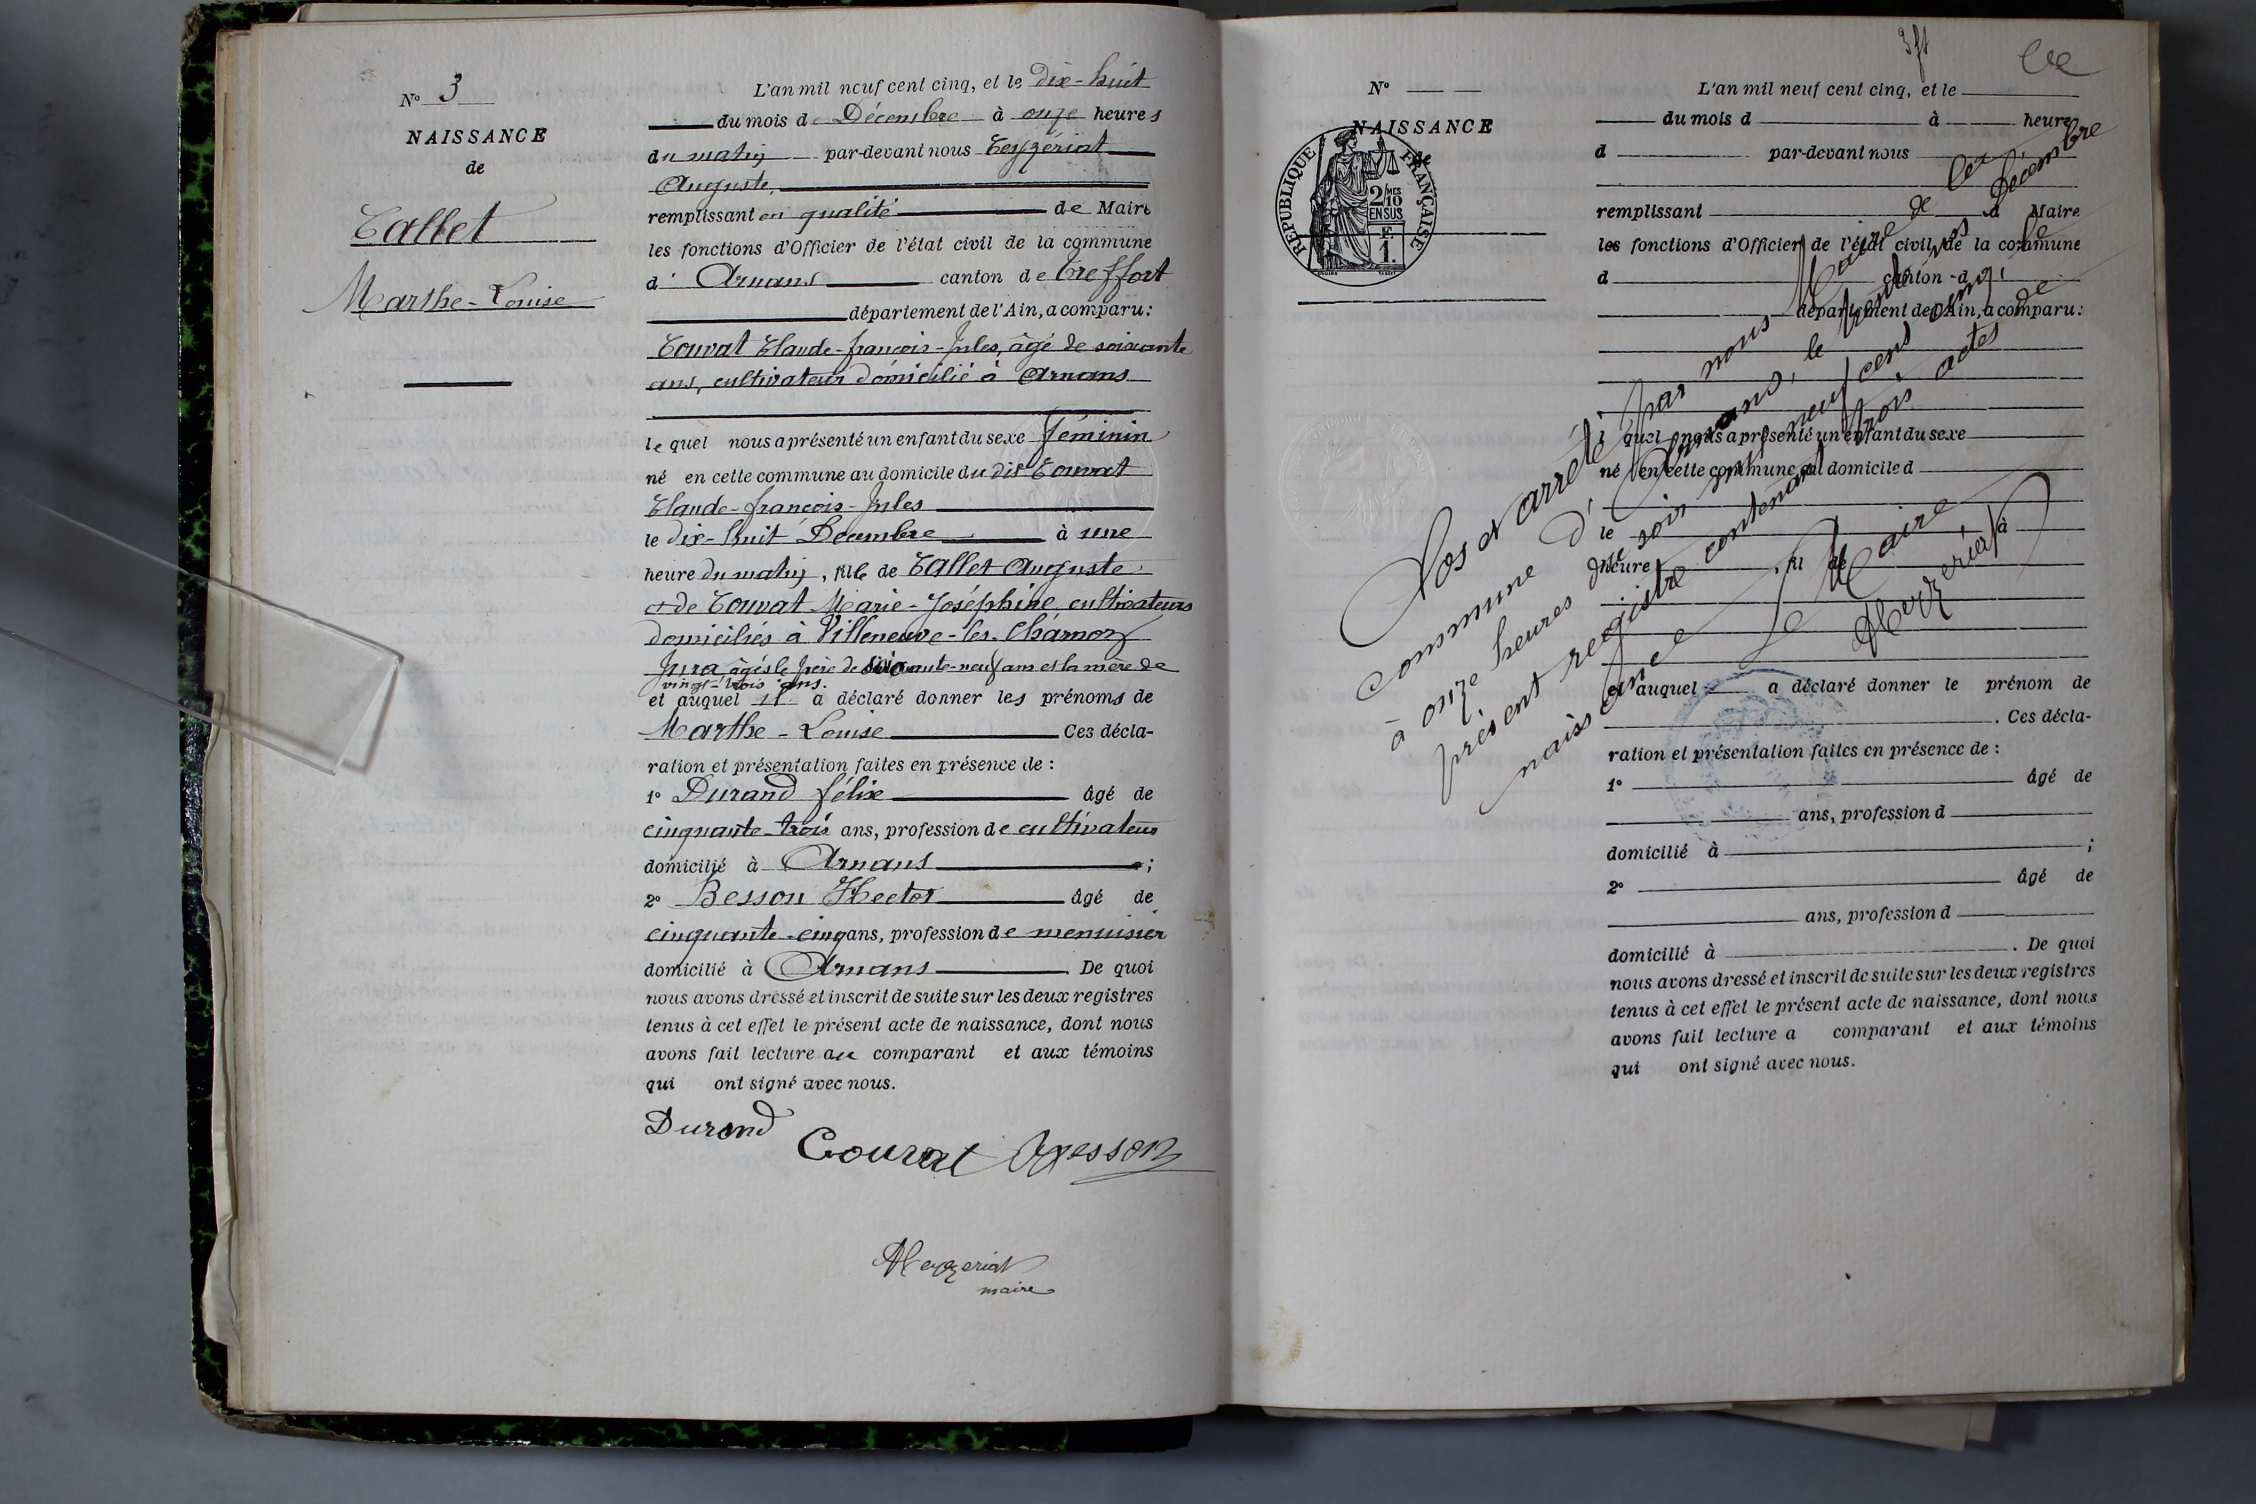 N° 3
NAISSANCE
de
Tallet
Marthe-Louise
L'an mil neuf cent cinq, et le dix-huit
du mois de Décembre à onze heures
du matin par-devant nous Teyzériat
Auguste,
remplissant en qualité de Maire
les fonctions d'Officier de l'état civil de la commune
d'Arnans canton de Treffort
département de l'Ain, a comparu:
Couvat Claude-françois-Jules, âgé de soixante
ans, cultivateur domicilié à Arnans
lequel nous a présenté un enfant du sexe féminin
né en cette commune au domicile du dit Couvat
Claude-françois-Jules
le dix-huit Décembre à une
heure du matin, fille de Tallet Auguste
et de Couvat Marie-Joséphine, cultivateurs
domiciliés à Villeneuve-les-Charnod
Jura, âgés le père de ans et la mère de
vingt-trois ans.
et auquel il a déclaré donner les prénoms de
Marthe-Louise Ces décla-
ration et présentation faites en présence de :
1° Durand félix âgé de
cinquante-trois ans, profession de cultivateur
domicilié à Arnans ;
2° Besson Hector âgé de
cinquante-cinq ans, profession de menuisier
domicilié à Arnans De quoi
nous avons dressé et inscrit de suite sur les deux registres
tenus à cet effet le présent acte de naissance, dont nous
avons fait lecture au comparant et aux témoins
qui ont signé avec nous.
Durand
Couvat Besson
Teyzeriat
maire
N°
NAISSANCE
de
RÉPUBLIQUE FRANÇAISE
2/10 MES
EN SUS
F.
1.
L'an mil neuf cent cinq, et le
du mois d à heure
d par-devant nous
remplissant d Maire
les fonctions d'Officier de l'état civil de la commune
d canton d
département de l'Ain, a comparu:
l quel nous a présenté un enfant du sexe
né en cette commune au domicile d
le à
heure , fil de
et auquel a déclaré donner le prénom de
. Ces décla-
ration et présentation faites en présence de :
1° âgé de
ans, profession d
domicilié à ;
2° âgé de
ans, profession d
domicilié à . De quoi
nous avons dressé et inscrit de suite sur les deux registres
tenus à cet effet le présent acte de naissance, dont nous
avons fait lecture a comparant et aux témoins
qui ont signé avec nous.
Clos et arrêté par nous Maire de la
commune d'Arnans, le trente un Décembre
à onze heures du soir mil neuf cent cinq, le
présent registre contenant trois actes de
naissance
Le Maire
Teyzériat